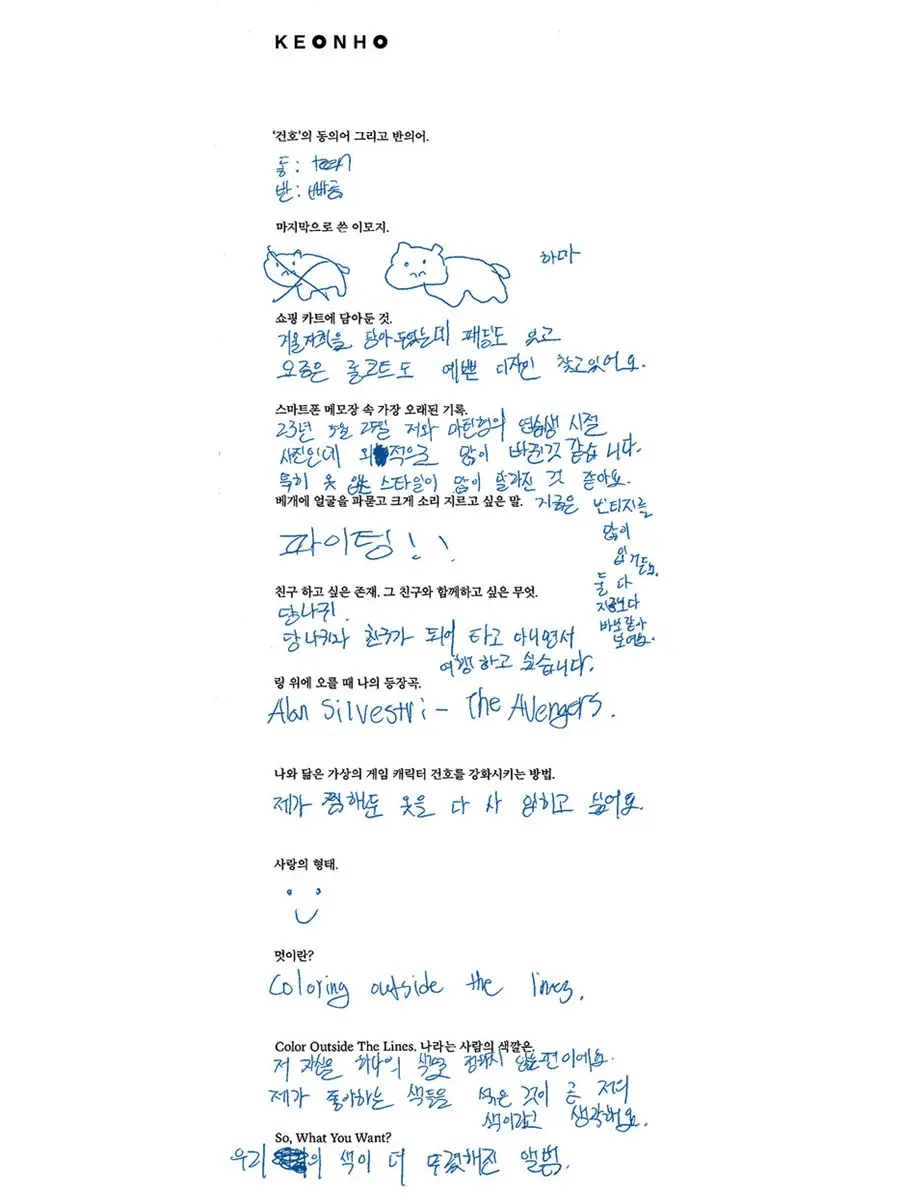 KEONHO
‘건호’의 동의어 그리고 반의어.
동:
반: 빠름
마지막으로 쓴 이모지.
하마
쇼핑 카트에 담아둔 것.
겨울자켓을 담아두었는데 패딩도 있고
요즘은 롱코트도 예쁜 디자인 찾고있어요.
스마트폰 메모장 속 가장 오래된 기록.
23년 5월 25일 저와 마틴형의 연습생 시절
사진인데 외적으로 많이 바뀐것 같습니다.
특히 옷 입는 스타일이 많이 달라진 것 같아요.
지금은 빈티지를
많이
입거든요.
둘 다
지금보다
바보같아
보여요.
베개에 얼굴을 파묻고 크게 소리 지르고 싶은 말.
파이팅!!
친구 하고 싶은 존재. 그 친구와 함께하고 싶은 무엇.
당나귀.
당나귀와 친구가 되어 타고 다니면서
여행하고 싶습니다.
링 위에 오를 때 나의 등장곡.
Alan Silvestri - The Avengers.
나와 닮은 가상의 게임 캐릭터 건호를 강화시키는 방법.
제가 찜해둔 옷을 다 사 입히고 싶어요.
사랑의 형태.
멋이란?
Coloring outside the lines.
Color Outside The Lines. 나라는 사람의 색깔은.
저 자신을 하나의 색으로 정하지 않는편이에요.
제가 좋아하는 색들을 섞은 것이 곧 저의
색이라고 생각해요.
So, What You Want?
우리의 색이 더 뚜렷해진 앨범.